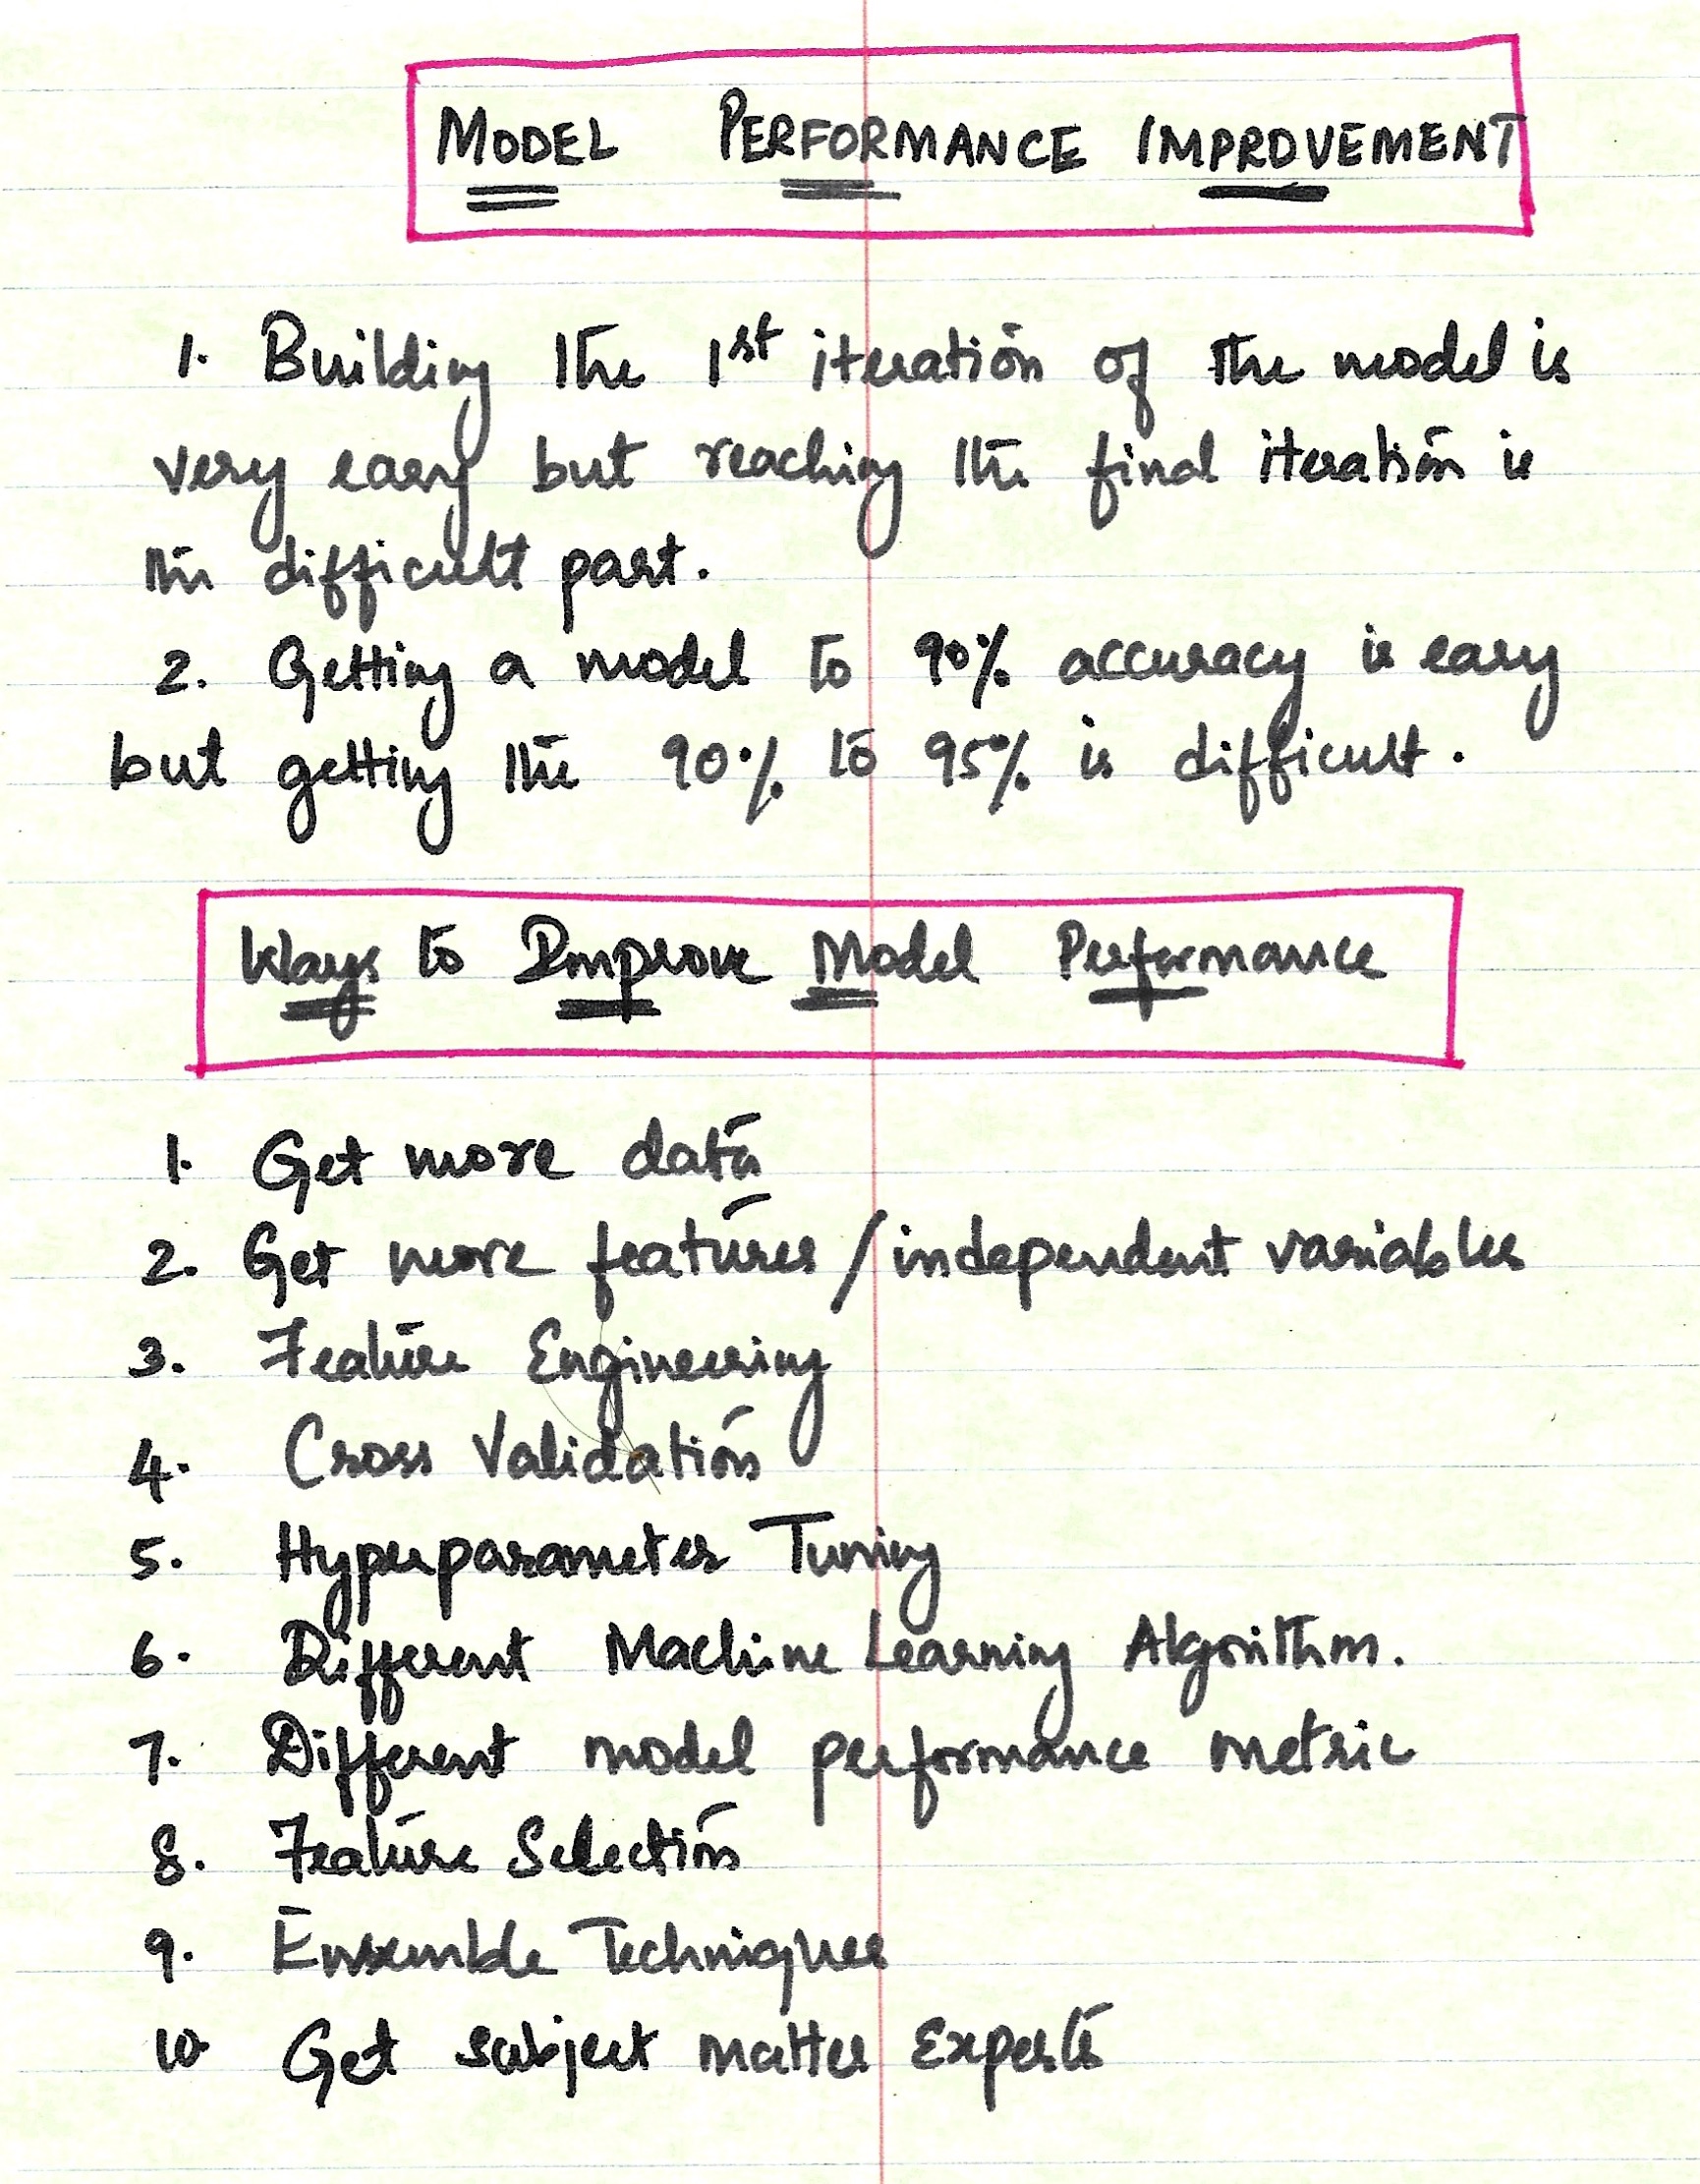 MODEL PERFORMANCE IMPROVEMENT
1. Building the 1st iteration of the model is
very easy but reaching the final iteration is
the difficult part.
2. Getting a model to 90% accuracy is easy
but getting the 90% to 95% is difficult.
Ways to Improve Model Performance
1. Get more data
2. Get more features/independent variables
3. Feature Engineering
4. Cross Validation
5. Hyperparameter Tuning
6. Different Machine Learning Algorithm.
7. Different model performance metric
8. Feature Selection
9. Ensemble Techniques
10 Get subject matter Experts